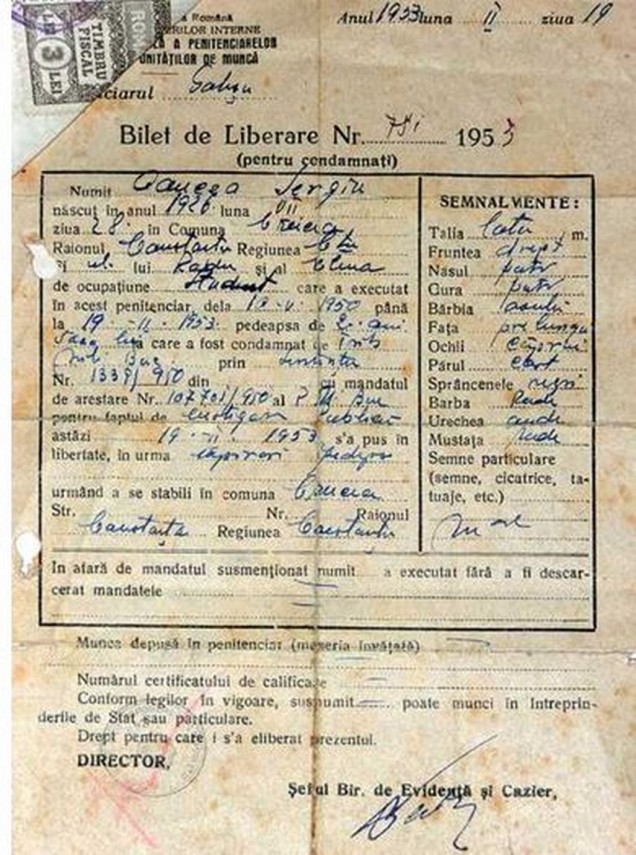 Română
ERILOR INTERNE
A PENITENCIARELOR
UNITĂȚILOR DE MUNCĂ
ciarul
Anul 1953 luna II ziua 19
ROM
TIMBRU
FISCAL
3 LEI
Bilet de Liberare Nr. 1953
(pentru condamnați)
Numit Sergiu
născut în anul 1926 luna VII
ziua 28 în Comuna
Raionul Constanța Regiunea Cța
Fi ul lui Radu și al Elena
de ocupațiune student care a executat
în acest penitenciar, dela 10-V-1950 până
la 19-II-1953 pedeapsa de 2 ani
care a fost condamnat de Trib
Mil. Buc prin sentința
Nr. 1339/950 din cu mandatul
de arestare Nr. 107701/950 al P. M. Buc
pentru faptul de publică
astăzi 19-II-1953 s'a pus în
libertate, în urma expirări pedepsei
urmând a se stabili în comuna
Str. Nr. Raionul
Constanța Regiunea Constanța
SEMNALMENTE:
Talia m.
Fruntea drept
Nasul potr
Gura potr
Bărbia
Fața prelungă
Ochii căprui
Părul cast
Sprâncenele
Barba Rade
Urechea
Mustața rade
Semne particulare
(semne, cicatrice, ta-
tuaje, etc.)
In afară de mandatul susmenționat numit a executat fără a fi descar-
cerat mandatele
Munca depusă în penitenciar (meseria învățată)
Numărul certificatului de calificare
Conform legilor în vigoare, susnumit poate munci în întreprin-
derile de Stat sau particulare.
Drept pentru care i s'a eliberat prezentul.
DIRECTOR,
Șeful Bir. de Evidență și Cazier,